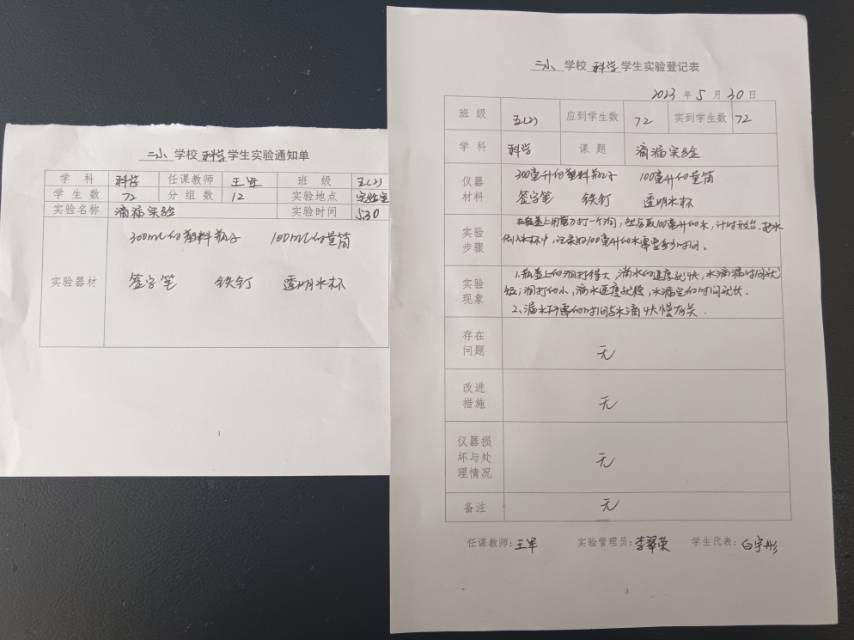 二小 学校 科学 学生实验通知单
学科 科学 任课教师 王军 班级 五(2)
学生数 72 分组数 12 实验地点 实验室
实验名称 滴漏实验 实验时间 5.30
300mL的塑料瓶子 100mL的量筒
实验器材 签字笔 铁钉 透明水杯
二小 学校 科学 学生实验登记表
2023 年 5 月 30 日
班级 五(2) 应到学生数 72 实到学生数 72
学科 科学 课题 滴漏实验
仪器材料 300毫升的塑料瓶子 100毫升的量筒
签字笔 铁钉 透明水杯
实验步骤 在瓶盖上用剪刀打一个洞,然后取100毫升的水,计时开始,把水
倒入水杯中,记录的100毫升的水需要多少时间。
实验现象 1.瓶盖上的洞打得大,滴水的速度就快,水滴漏时间就
短;洞打的小,滴水速度就慢,水漏完的时间就长.
2、漏水所需的时间与水滴快慢有关.
存在问题 无
改进措施 无
仪器损坏与处理情况 无
备注 无
任课教师:王军 实验管理员:李翠荣 学生代表:白宇彤